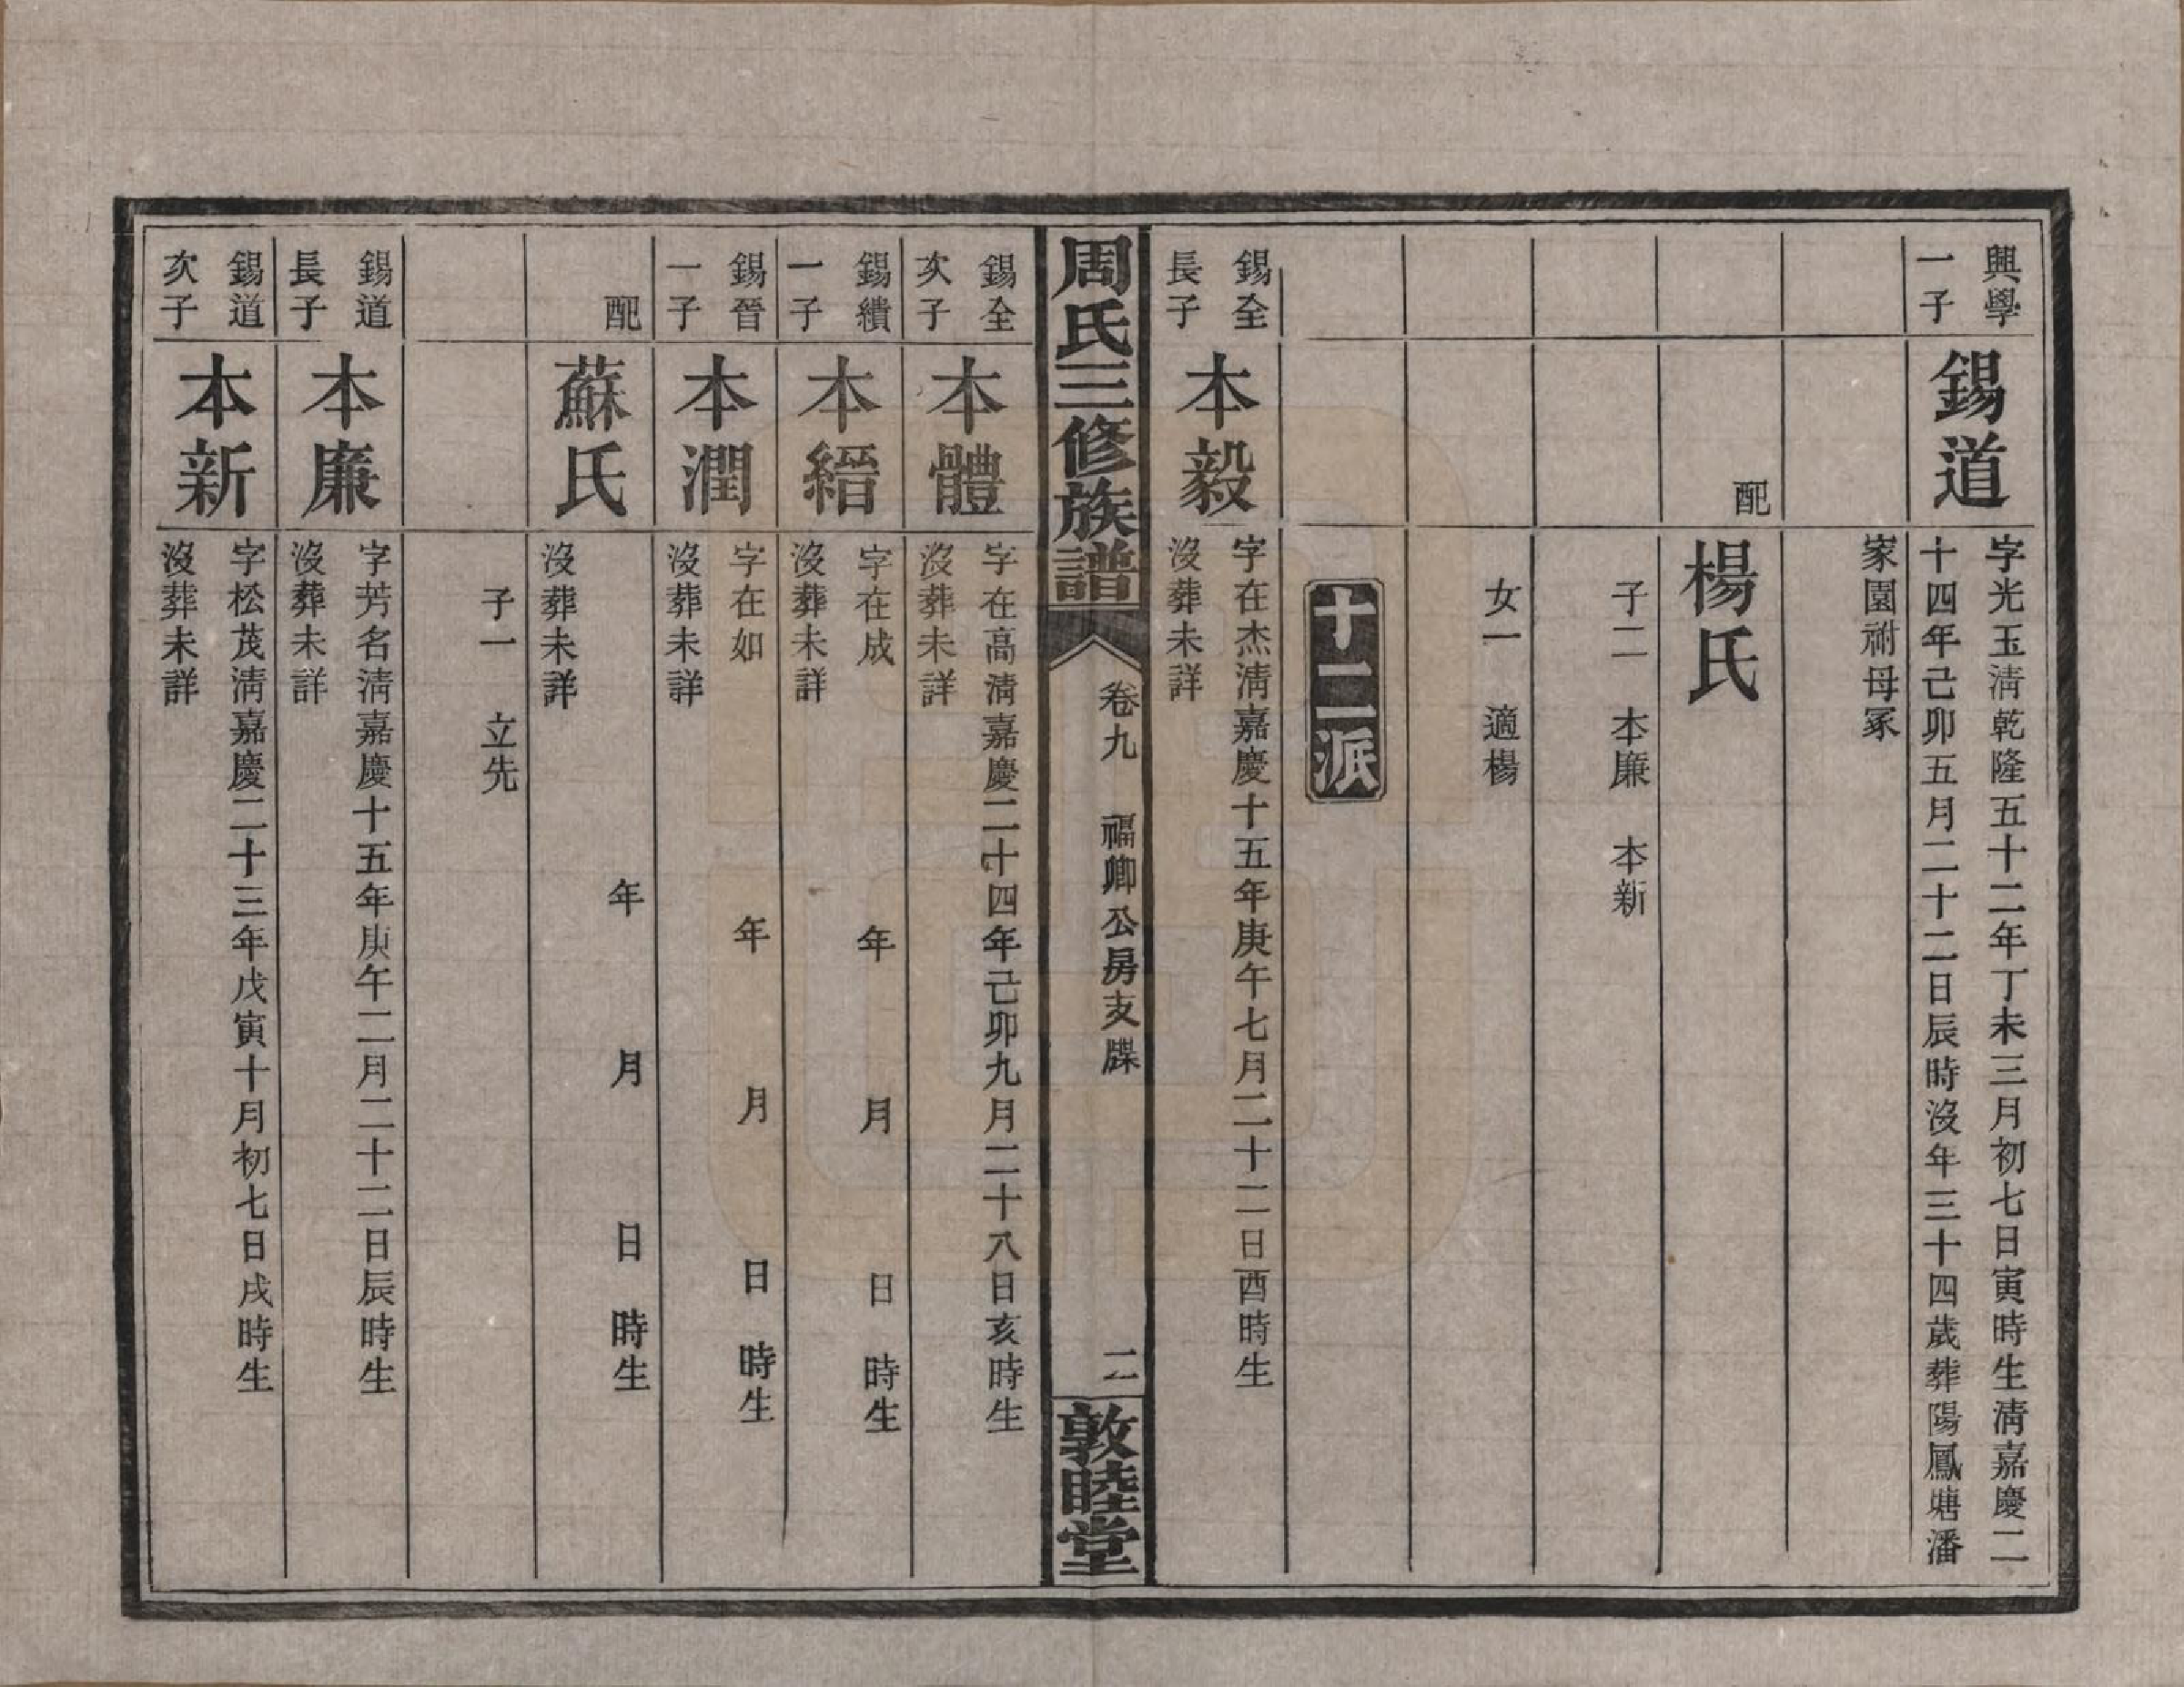 興學
一子
錫道
字光玉淸乾隆五十二年丁未三月初七日寅時生淸嘉慶二
十四年己卯五月二十二日辰時沒年三十四歲葬陽鳳塘潘
家園祔母冢
配
楊氏
子二　本廉　本新
女一　適楊
十二派
錫全
長子
本毅
字在杰淸嘉慶十五年庚午七月二十二日酉時生
沒葬未詳
周氏三修族譜
卷九　福卿公房支牒
二
敦睦堂
錫全
次子
本體
字在高淸嘉慶二十四年己卯九月二十八日亥時生
沒葬未詳
錫績
一子
本縉
字在成　年　月　日　時生
沒葬未詳
錫晉
一子
本潤
字在如　年　月　日　時生
沒葬未詳
配
蘇氏
年　月　日　時生
沒葬未詳
子一　立先
錫道
長子
本廉
字芳名淸嘉慶十五年庚午二月二十二日辰時生
沒葬未詳
錫道
次子
本新
字松茂淸嘉慶二十三年戊寅十月初七日戌時生
沒葬未詳